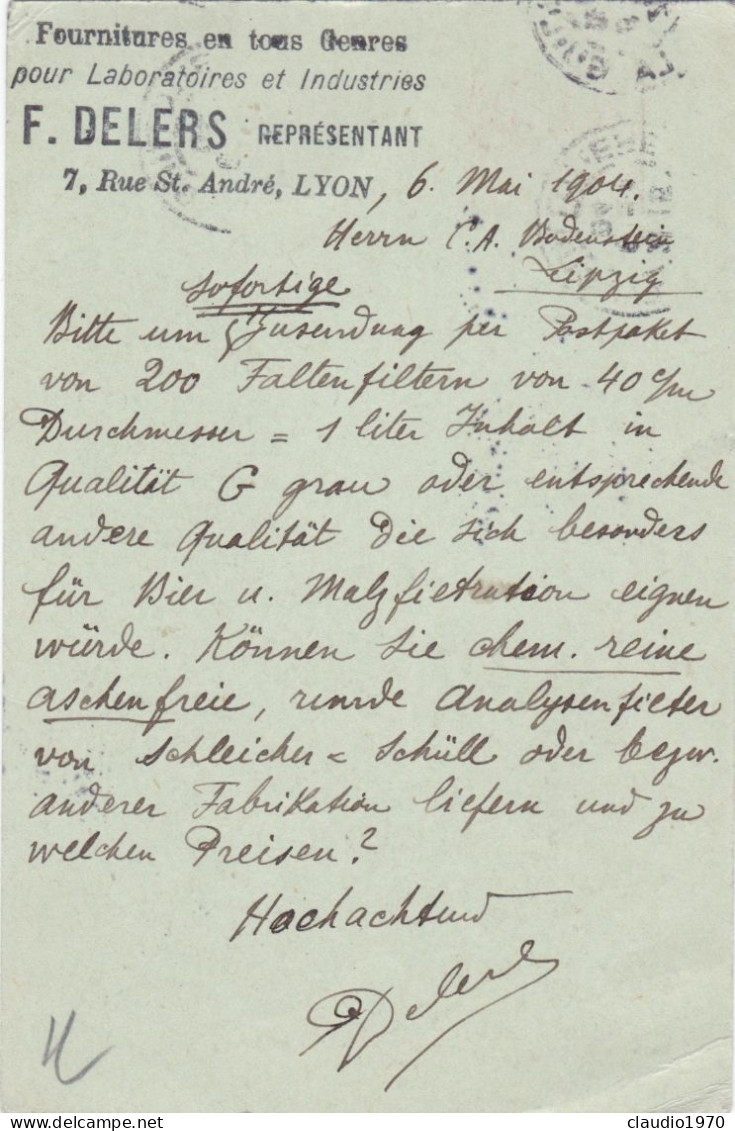 Fournitures en tous Genres
pour Laboratoires et Industries
F. DELERS REPRÉSENTANT
7, Rue St. André, LYON, 6. Mai 1904.
Herrn C. A. Bodenstein
Leipzig
sofortige
Bitte um Zusendung per Postpaket
von 200 Faltenfiltern von 40 c/m
Durchmesser = 1 liter Inhalt in
Qualität G grau oder entsprechende
andere Qualität die sich besonders
für Bier u. Malzfietration eignen
würde. Können Sie chem. reine
aschenfreie, runde Analysenfilter
von Schleicher = Schüll oder bezw.
anderer Fabrikation liefern und zu
welchen Preisen?
Hochachtend
Delers
claudio1970